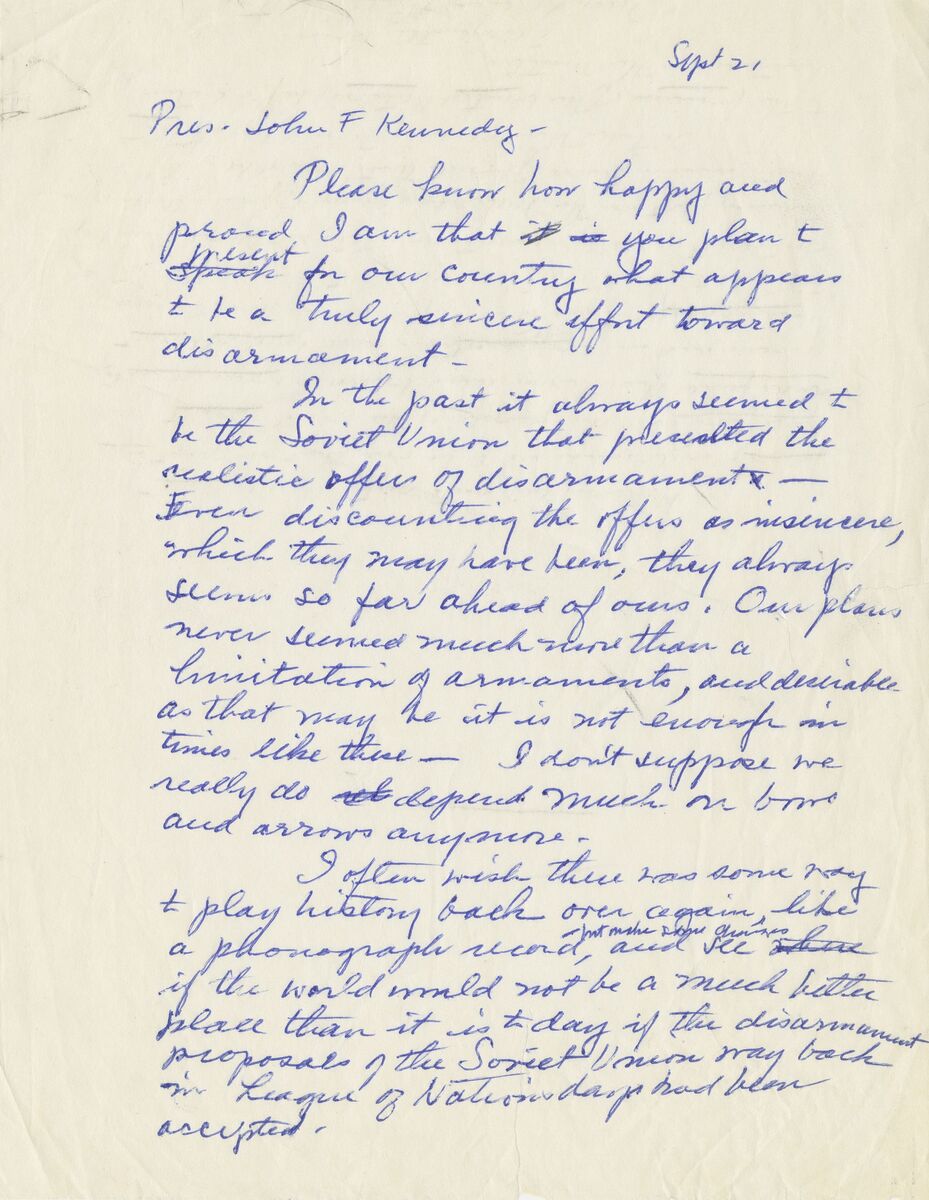 Sept 21
Pres. John F Kennedy -
Please know how happy and
proud I am that it is you plan t
present
speak for our country what appears
t be a truly sincere effort toward
disarmament -
In the past it always seemed t
be the Soviet Union that presented the
realistic offers of disarmament -
Even discounting the offers as insincere,
which they may have been, they always
seems so far ahead of ours. Our plans
never seemed much more than a
limitation of armaments, and desirable
as that may be it is not enough in
times like these - I don't suppose we
really do depend much on bows
and arrows anymore.
I often wish there was some way
t play history back over again, like
- but make some changes
a phonograph record, and see
if the world would not be a much better
place than it is t day if the disarmament
proposals of the Soviet Union way back
in League of Nations days had been
accepted.